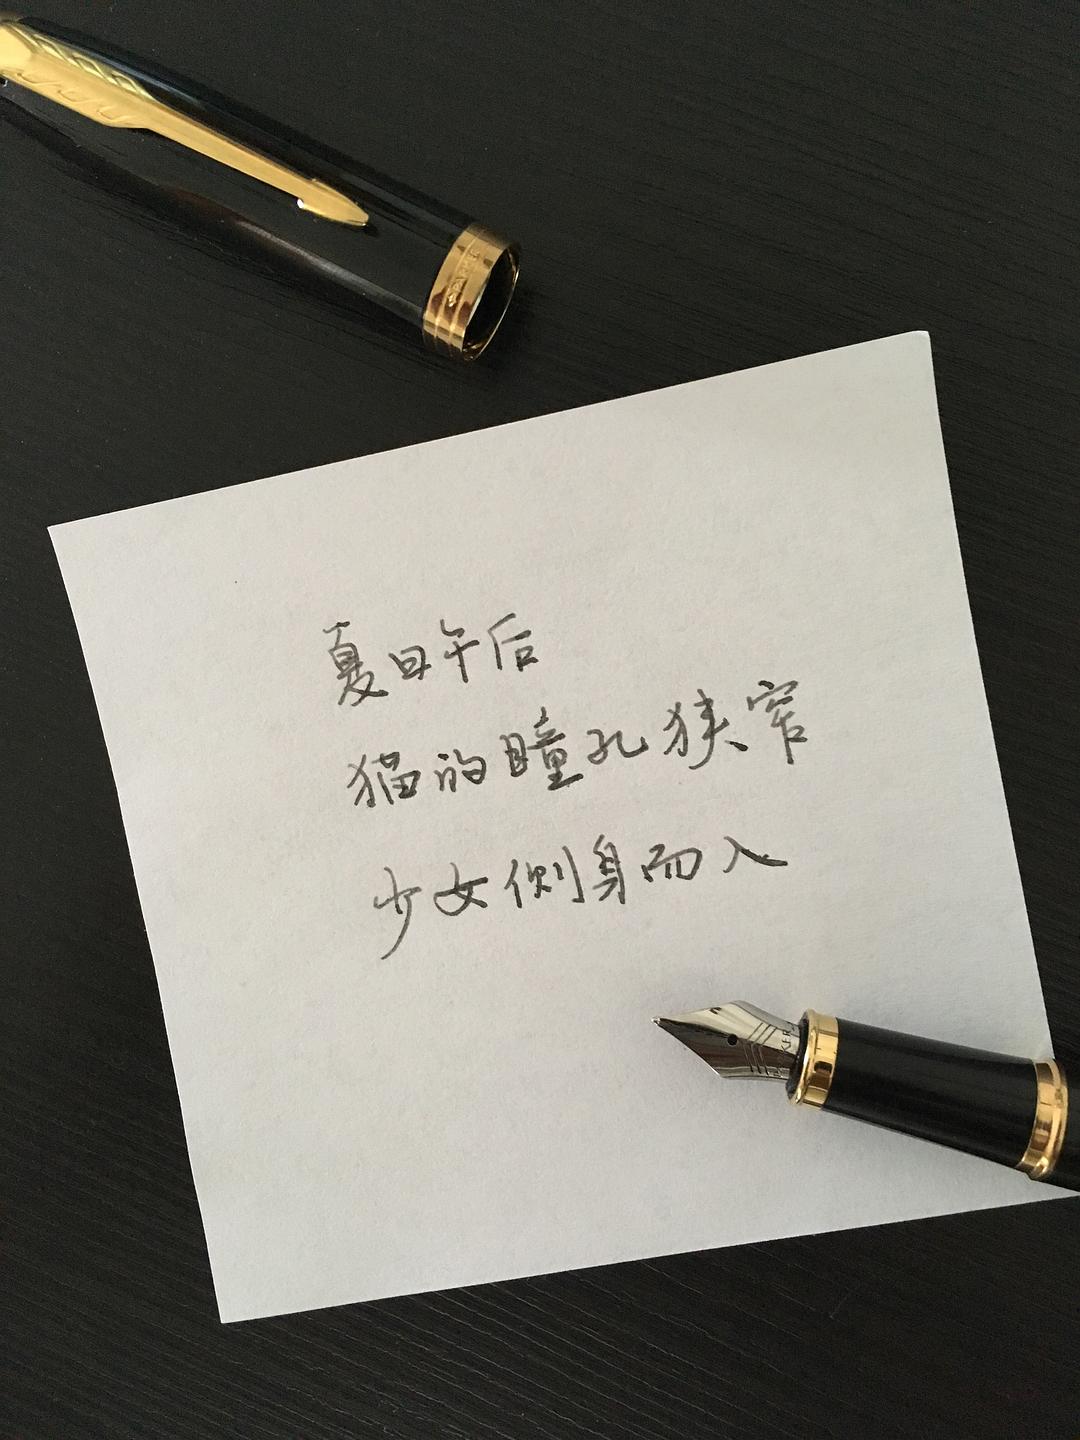 PARKER
夏日午后
猫的瞳孔狭窄
少女侧身而入
KER